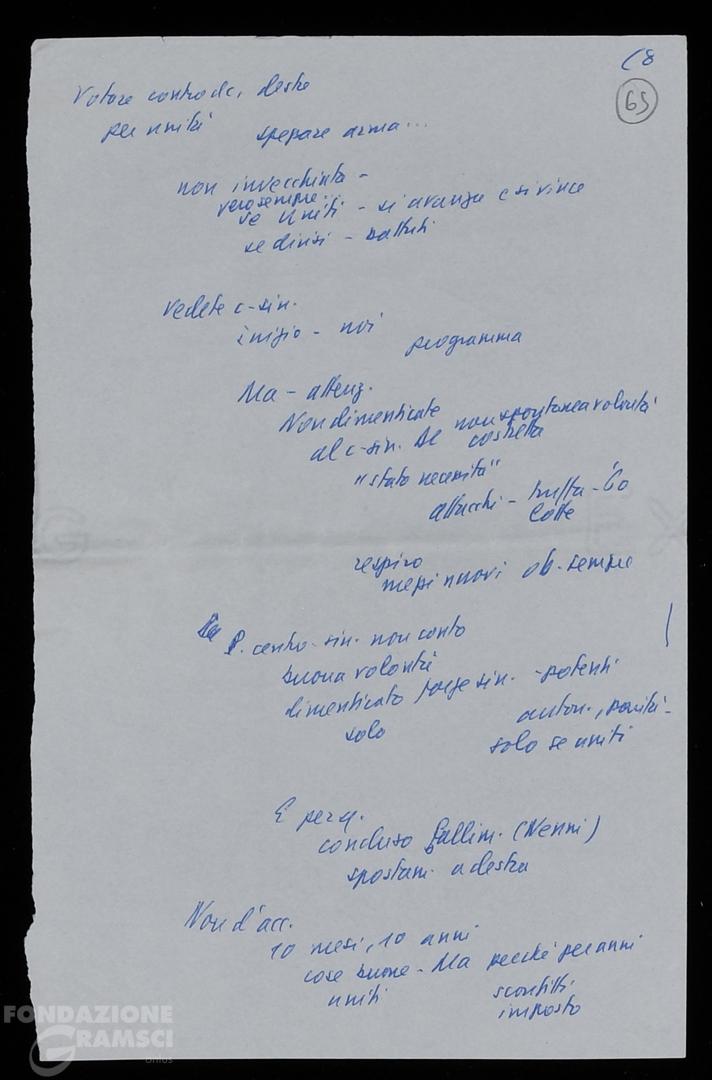 C8
65
Votare contro dc, destre
per unità
spezzare arma...
non invecchiata -
vero sempre..
se uniti - si avanza e si vince
se divisi - battuti
Vedete c-sin.
inizio - noi
programma
Ma - attenz.
Non dimenticate
al c-sin. DC non spontanea volontà
costretta
"stato necessità"
attacchi - truffa -
lotte
respiro
mezzi nuovi ob. sempre
P. centro-sin. non conto
buona volontà
dimenticato forze sin. - potenti
solo
auton., parità -
solo se uniti
E perq.
concluso fallim. (Nenni)
spostam. a destra
Non d'acc.
10 mesi, 10 anni
cose buone - Ma perché per anni
uniti
sconfitti
imposto
FONDAZIONE
GRAMSCI
onlus